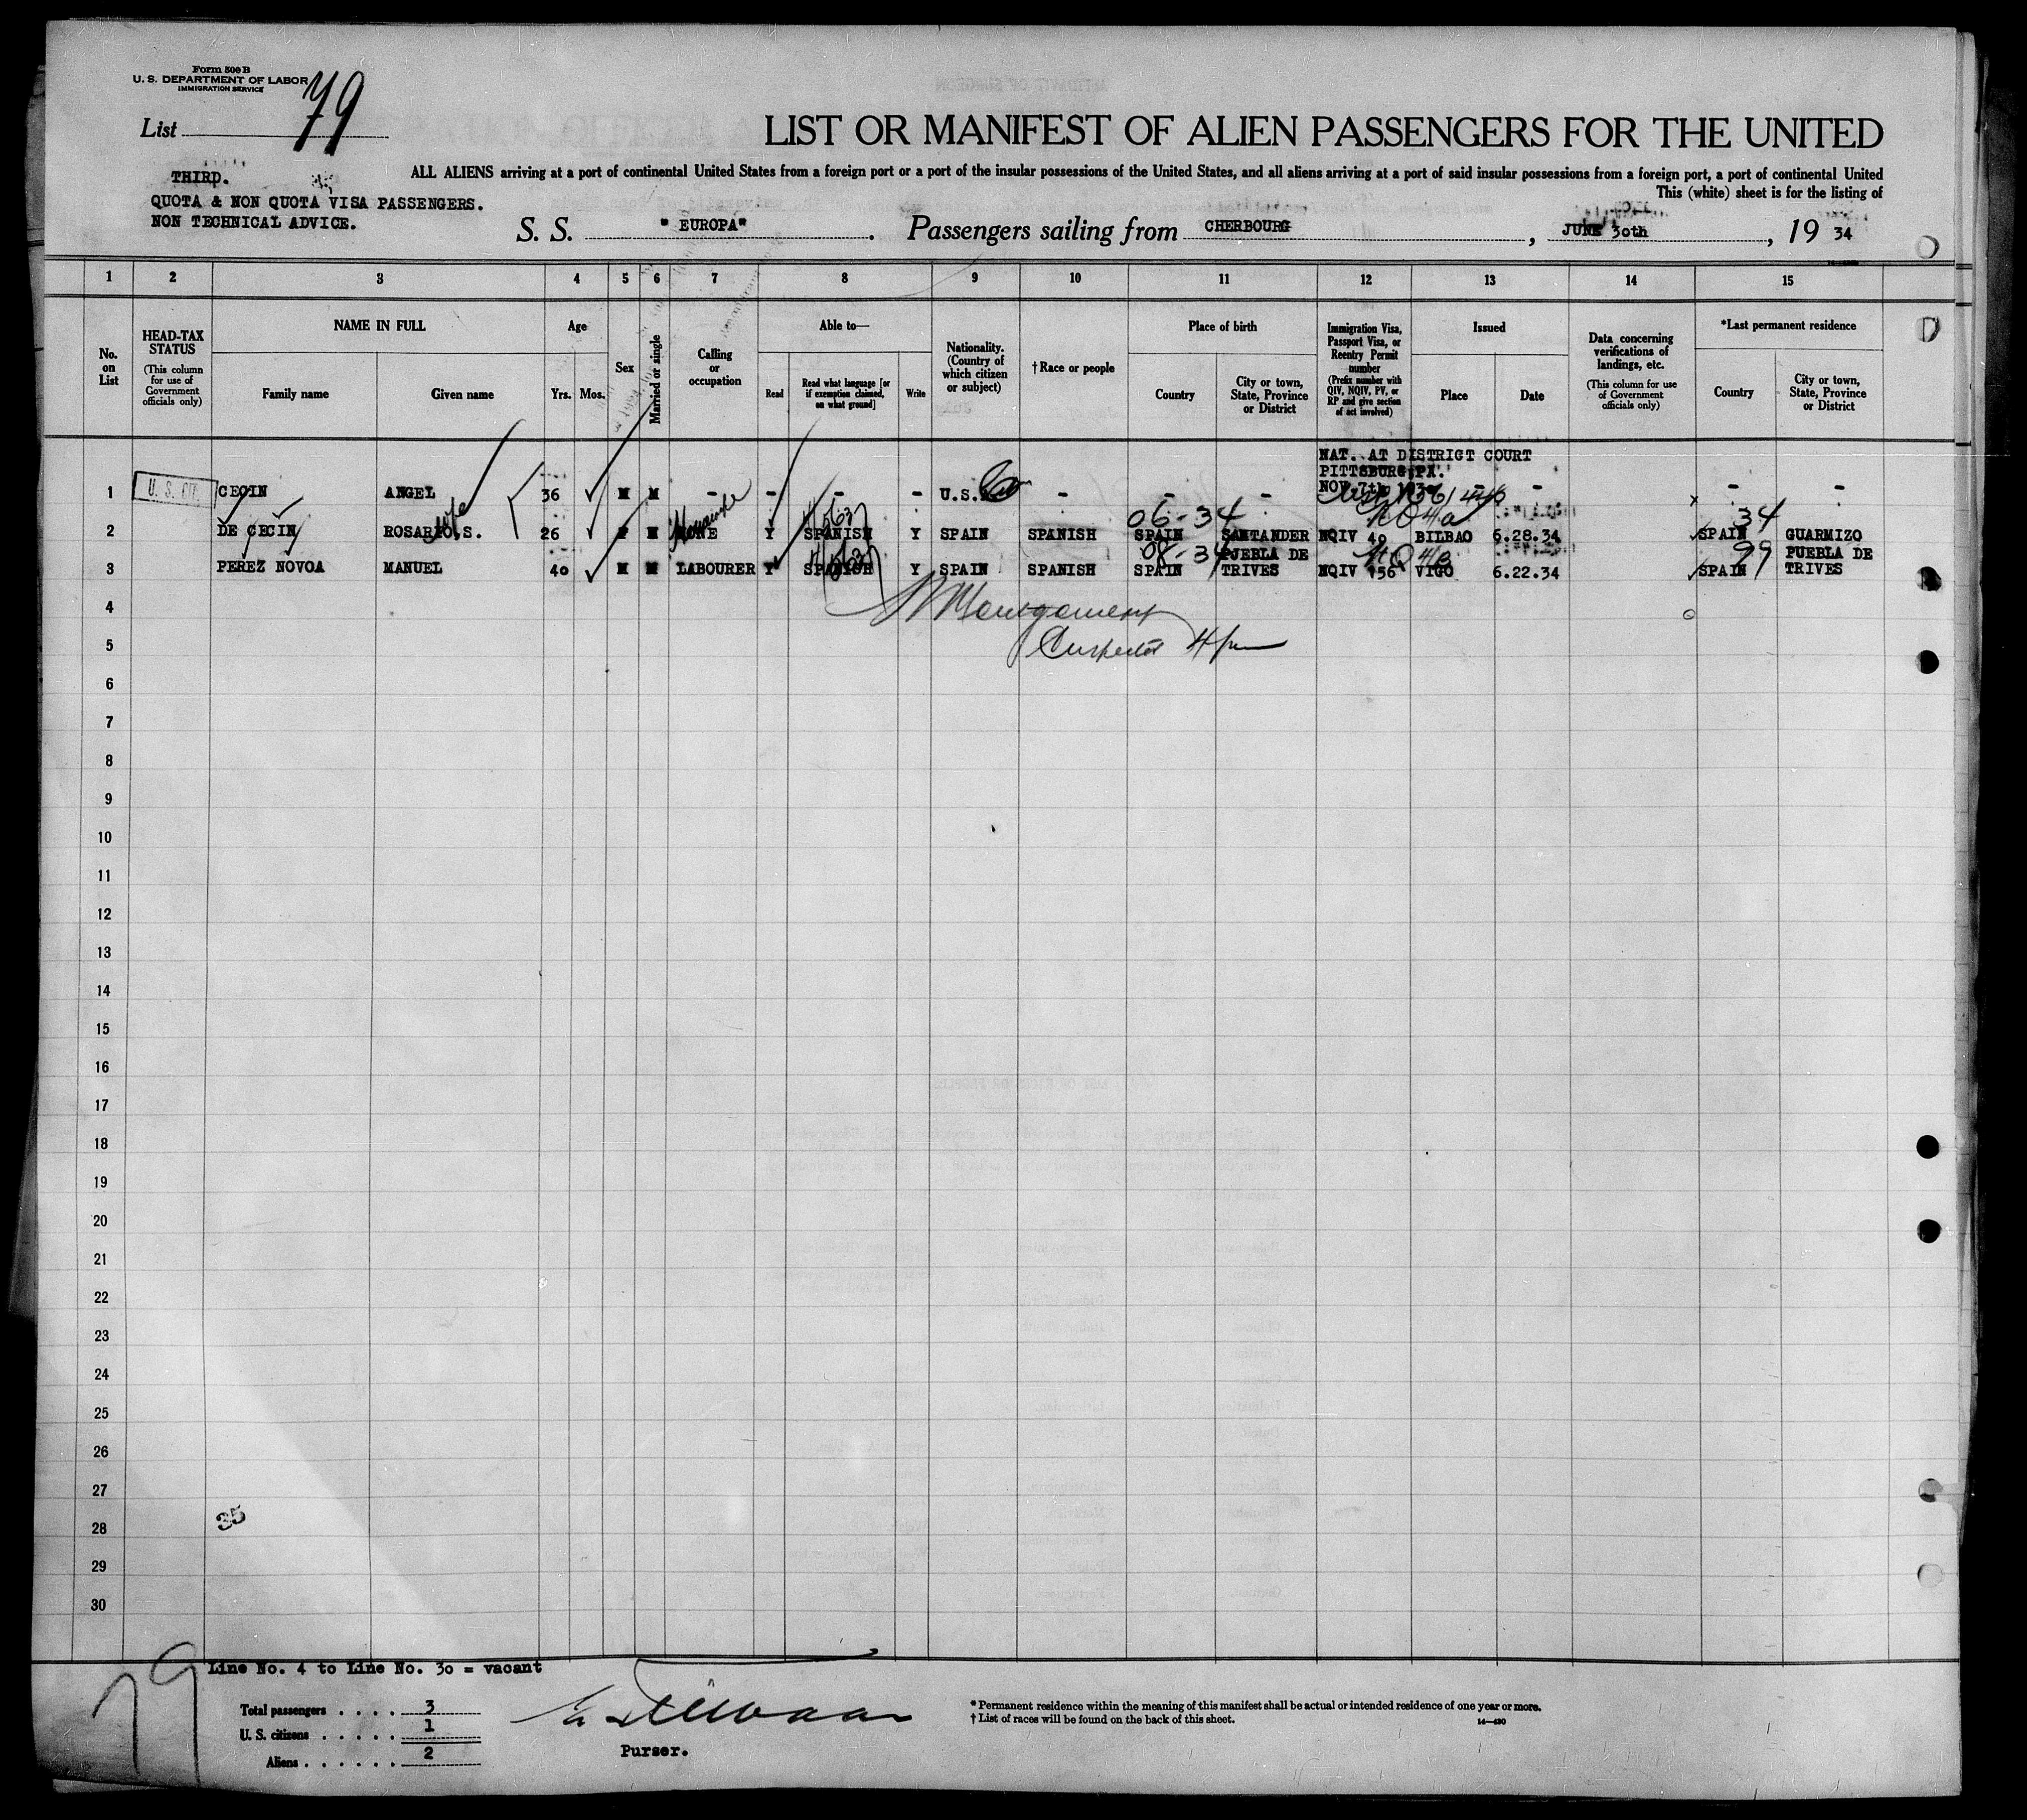 Form 500 B
U. S. DEPARTMENT OF LABOR
IMMIGRATION SERVICE
List 79
LIST OR MANIFEST OF ALIEN PASSENGERS FOR THE UNITED
THIRD.
QUOTA & NON QUOTA VISA PASSENGERS.
NON TECHNICAL ADVICE.
ALL ALIENS arriving at a port of continental United States from a foreign port or a port of the insular possessions of the United States, and all aliens arriving at a port of said insular possessions from a foreign port, a port of continental United
This (white) sheet is for the listing of
S. S. "EUROPA". Passengers sailing from CHERBOURG, JUNE 30th, 19 34
1 2 3 4 5 6 7 8 9 10 11 12 13 14 15
No. on List
HEAD-TAX STATUS
(This column for use of Government officials only)
NAME IN FULL
Family name Given name
Age
Yrs. Mos.
Sex
Married or single
Calling or occupation
Able to—
Read
Read what language [or if exemption claimed, on what ground]
Write
Nationality. (Country of which citizen or subject)
†Race or people
Place of birth
Country
City or town, State, Province or District
Immigration Visa, Passport Visa, or Reentry Permit number
(Prefix number with QIV, NQIV, PV, or RP and give section of act involved)
Issued
Place Date
Data concerning verifications of landings, etc.
(This column for use of Government officials only)
*Last permanent residence
Country
City or town, State, Province or District
NAT. AT DISTRICT COURT
PITTSBURG, PA.
1 U. S. CIT. CECIN ANGEL 36 M M - - - - U.S. - - - NOV. 7th - - - -
wife 06-34 34
2 DE CECIN ROSARIO S. 26 F M NONE Y SPANISH Y SPAIN SPANISH SPAIN SANTANDER NQIV 49 BILBAO 6.28.34 SPAIN GUARMIZO
08-34 99
3 PEREZ NOVOA MANUEL 40 M M LABOURER Y SPANISH Y SPAIN SPANISH SPAIN PUEBLA DE TRIVES NQIV 156 VIGO 6.22.34 SPAIN PUEBLA DE TRIVES
4 Montgomery
5 Inspector
6
7
8
9
10
11
12
13
14
15
16
17
18
19
20
21
22
23
24
25
26
27
28
29
30
35
79
Line No. 4 to Line No. 30 = vacant
Total passengers . . . . 3
U. S. citizens . . . . . 1
Aliens . . . . . . 2
Purser.
*Permanent residence within the meaning of this manifest shall be actual or intended residence of one year or more.
†List of races will be found on the back of this sheet.
14—430